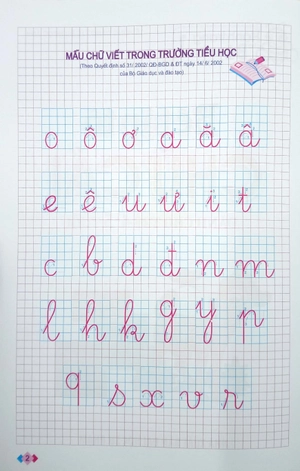 MẪU CHỮ VIẾT TRONG TRƯỜNG TIỂU HỌC
(Theo Quyết định số 31/ 2002/ QĐ-BGD & ĐT ngày 14/ 6/ 2002
của Bộ Giáo dục và đào tạo)
o ô ơ a ă â
e ê u ư i t
c b d đ n m
l h k g y p
q s x v r
2